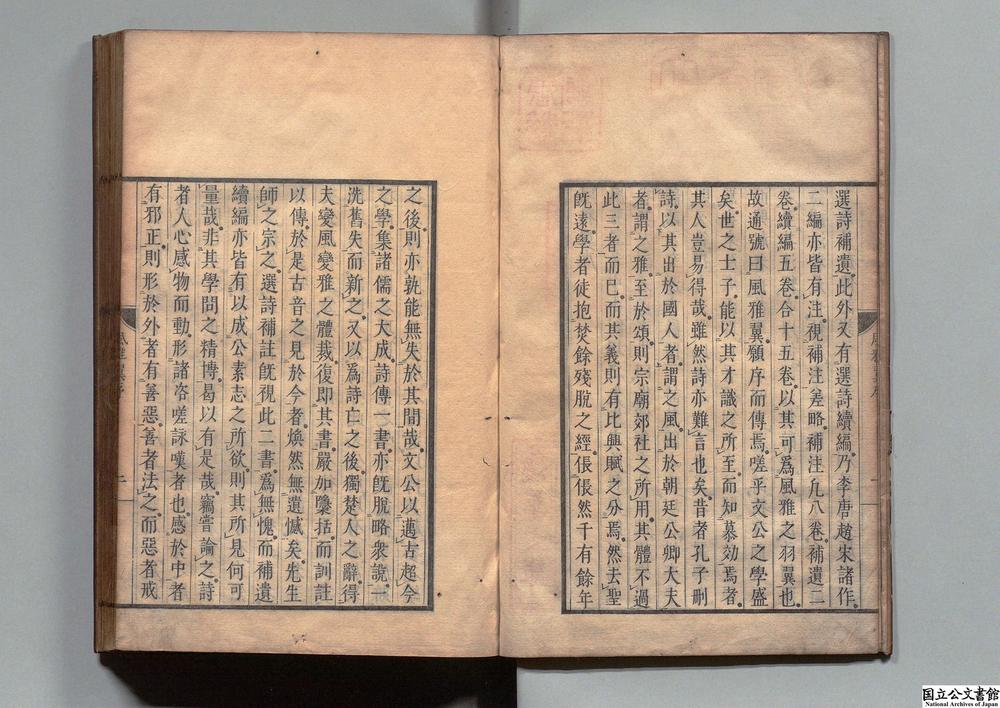 選詩補遺此外又有選詩續編乃李唐趙宋諸作
二編亦皆有注視補注差略補注凢八卷補遺二
卷續編五卷合十五卷以其可爲風雅之羽翼也
故通號曰風雅翼願序而傳焉嗟乎文公之學盛
矣世之士子能以其才識之所至而知慕効焉者
其人豈易得哉雖然詩亦難言也矣昔者孔子刪
詩以其出於國人者謂之風出於朝廷公卿大夫
者謂之雅至於頌則宗廟郊社之所用其體不過
此三者而已而其義則有比興賦之分焉然去聖
旣遠學者徒抱焚餘殘脫之經倀倀然千有餘年
之後則亦孰能無失於其間哉文公以邁古超今
之學集諸儒之大成詩傳一書亦旣脫略衆說一
洗舊失而新之又以爲詩亡之後獨楚人之辭得
夫變風變雅之體裁復即其書嚴加櫽括而訓註
以傳於是古音之見於今者煥然無遺憾矣先生
師之宗之選詩補註旣視此二書爲無愧而補遺
續編亦皆有以成公素志之所欲則其所見何可
量哉非其學問之精博曷以有是哉竊嘗論之詩
者人心感物而動形諸咨嗟詠嘆者也感於中者
有邪正則形於外者有善惡善者法之而惡者戒
二
国立公文書館
National Archives of Japan